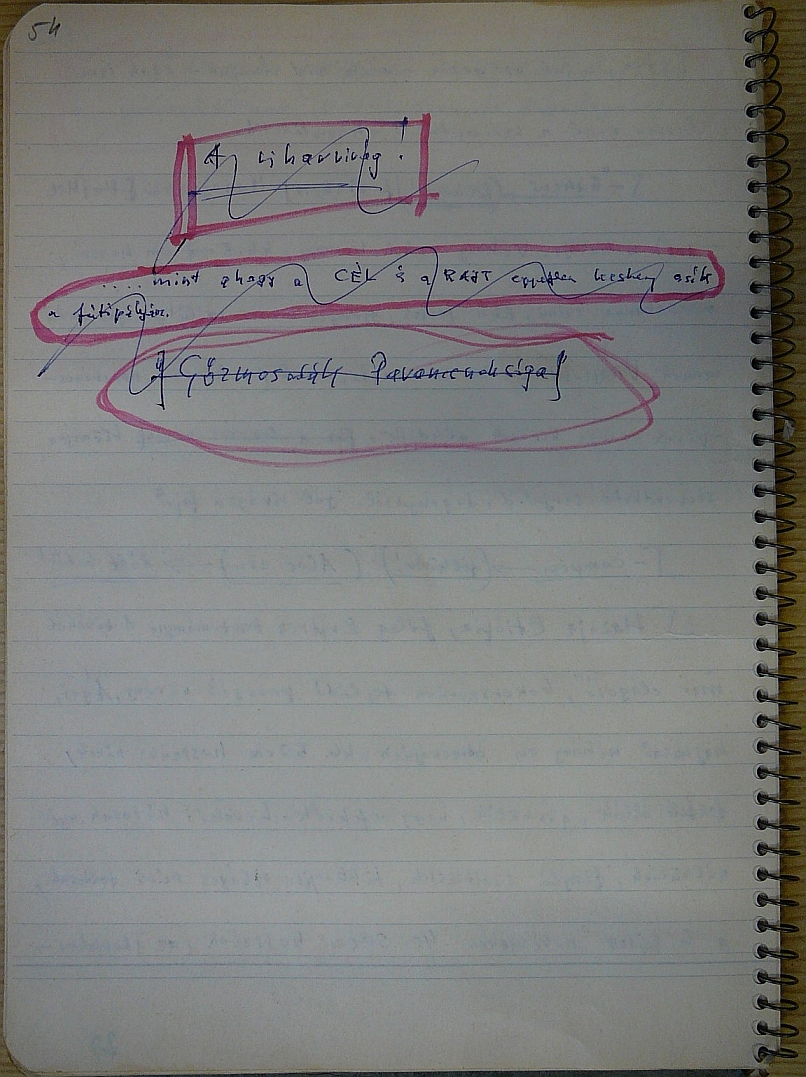 54
A viharvirág!
.... mint ahogy a CÉL és a RAJT egyetlen keskeny csík
a futópályán.
Gőzmosodák Parancsnoksága